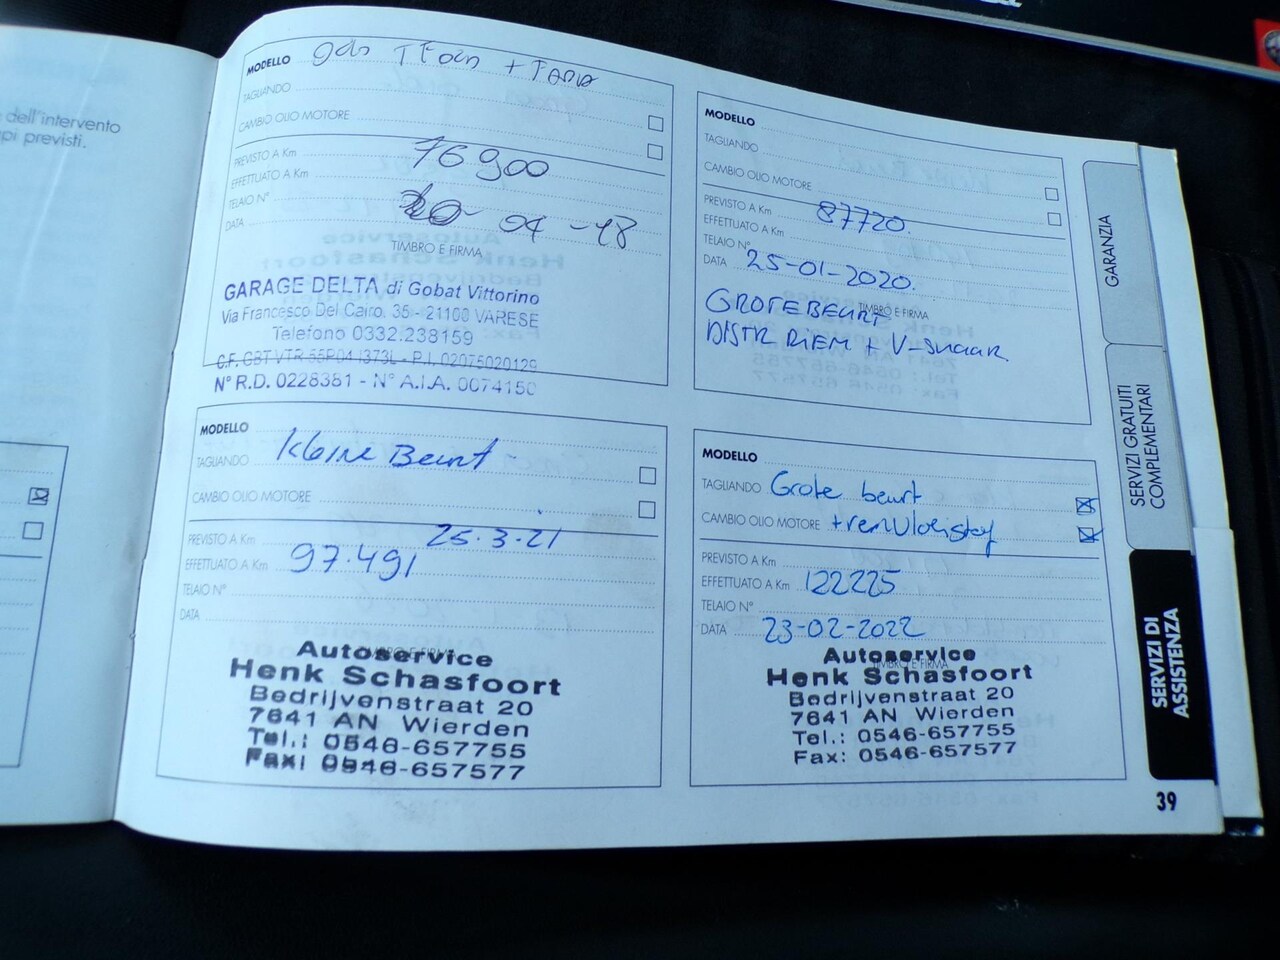 dell'intervento
pi previsti.
MODELLO
TAGLIANDO
CAMBIO OLIO MOTORE
PREVISTO A Km
76900
EFFETTUATO A Km
TELAIO N°
DATA
04-18
TIMBRO E FIRMA
GARAGE DELTA di Gobat Vittorino
Via Francesco Del Cairo, 35 - 21100 VARESE
Telefono 0332.238159
C.F. GBT VTR 55P04 I373L - P.I. 02075020129
N° R.D. 0228381 - N° A.I.A. 0074150
MODELLO
TAGLIANDO
CAMBIO OLIO MOTORE
PREVISTO A Km
87720.
EFFETTUATO A Km
TELAIO N°
DATA 25-01-2020.
TIMBRO E FIRMA
GROTE BEURT
DISTR RIEM + V-SNAAR
MODELLO
TAGLIANDO Kleine Beurt -
CAMBIO OLIO MOTORE
PREVISTO A Km 25.3.21
EFFETTUATO A Km 97.491
TELAIO N°
DATA
TIMBRO E FIRMA
Autoservice
Henk Schasfoort
Bedrijvenstraat 20
7641 AN Wierden
Tel.: 0546-657755
Fax: 0546-657577
MODELLO
TAGLIANDO Grote beurt
CAMBIO OLIO MOTORE + remvloeistof
PREVISTO A Km
EFFETTUATO A Km 122225
TELAIO N°
DATA 23-02-2022
TIMBRO E FIRMA
Autoservice
Henk Schasfoort
Bedrijvenstraat 20
7641 AN Wierden
Tel.: 0546-657755
Fax: 0546-657577
GARANZIA
SERVIZI GRATUITI
COMPLEMENTARI
SERVIZI DI
ASSISTENZA
39